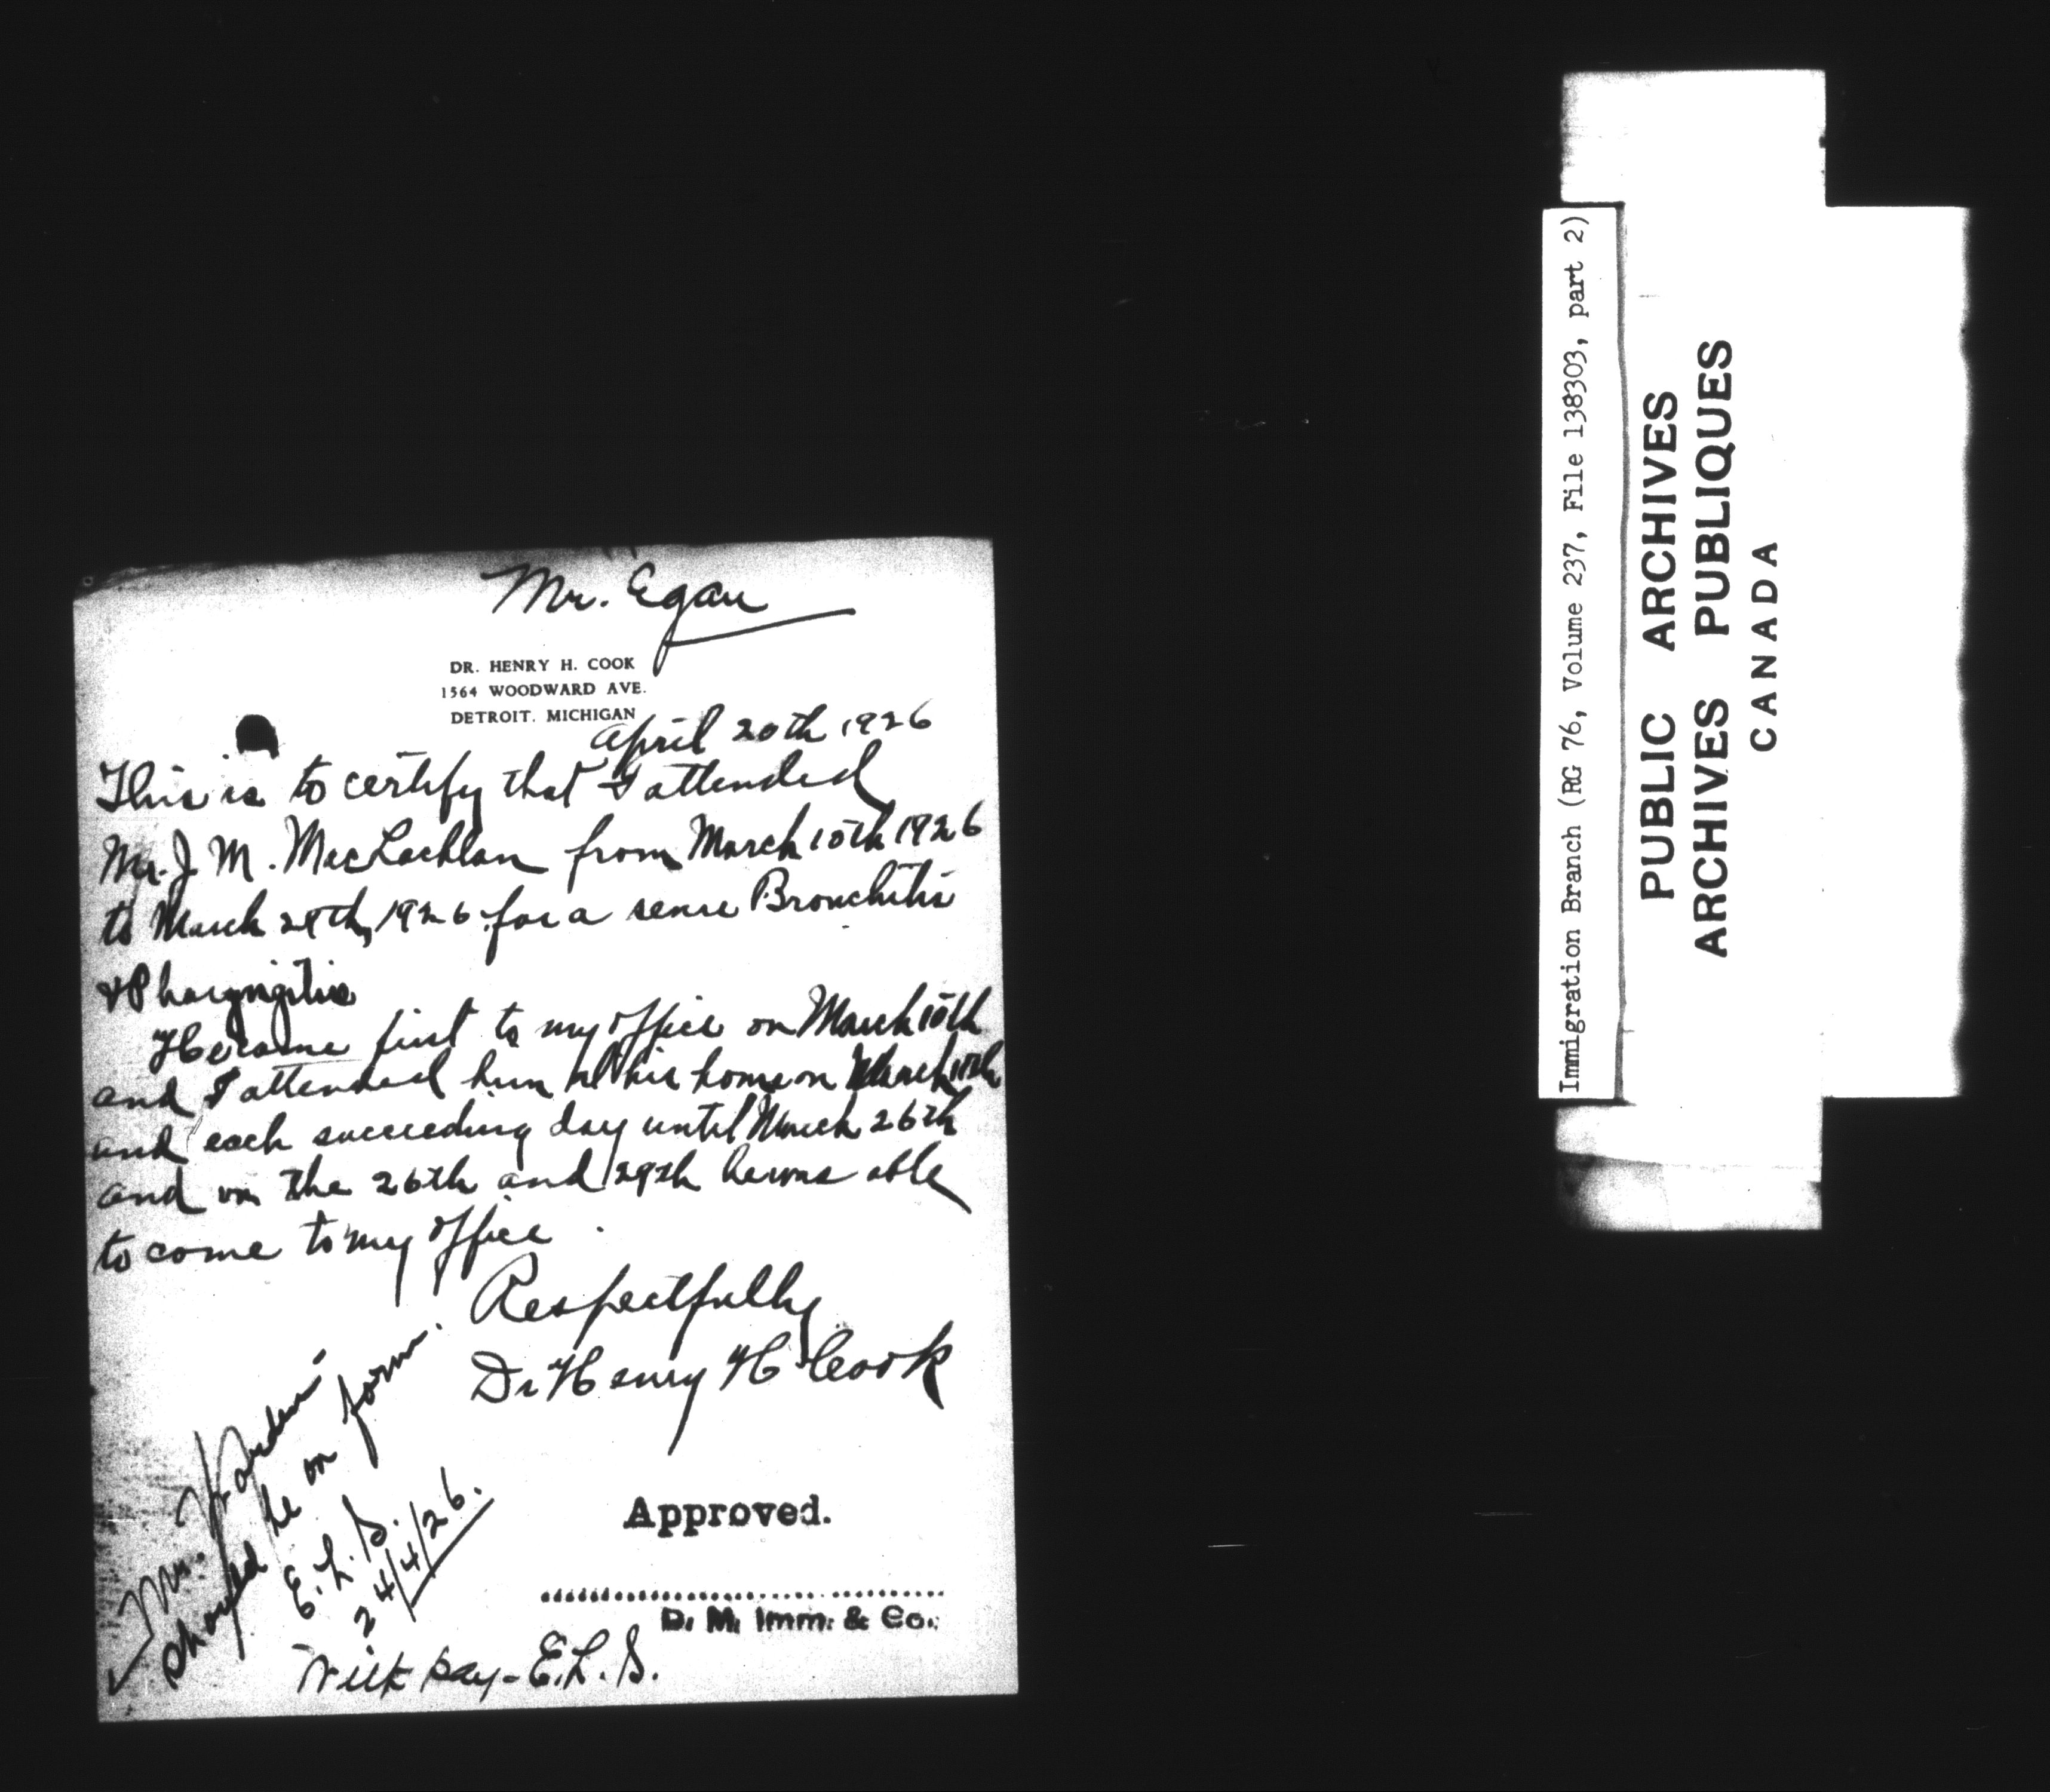 Mr. Egan
DR. HENRY H. COOK
1564 WOODWARD AVE.
DETROIT. MICHIGAN
April 20th 1926
This is to certify that I attended
Mr. J. M. MacLachlan from March 15th 1926
to March 29th, 1926 for a severe Bronchitis
& Pharyngitis
He came first to my office on March 15th
and I attended him at his home on March
and each succeeding day until March 26th
and on the 26th and 29th he was able
to come to my office
Respectfully
Dr Henry H Cook
Mr.
should be on form.
E. L. S.
24/4/26.
Approved.
D. M. Imm. & Co.
With pay - E. L. S.
Immigration Branch (RG 76, Volume 237, File 138303, part 2)
PUBLIC ARCHIVES
ARCHIVES PUBLIQUES
CANADA